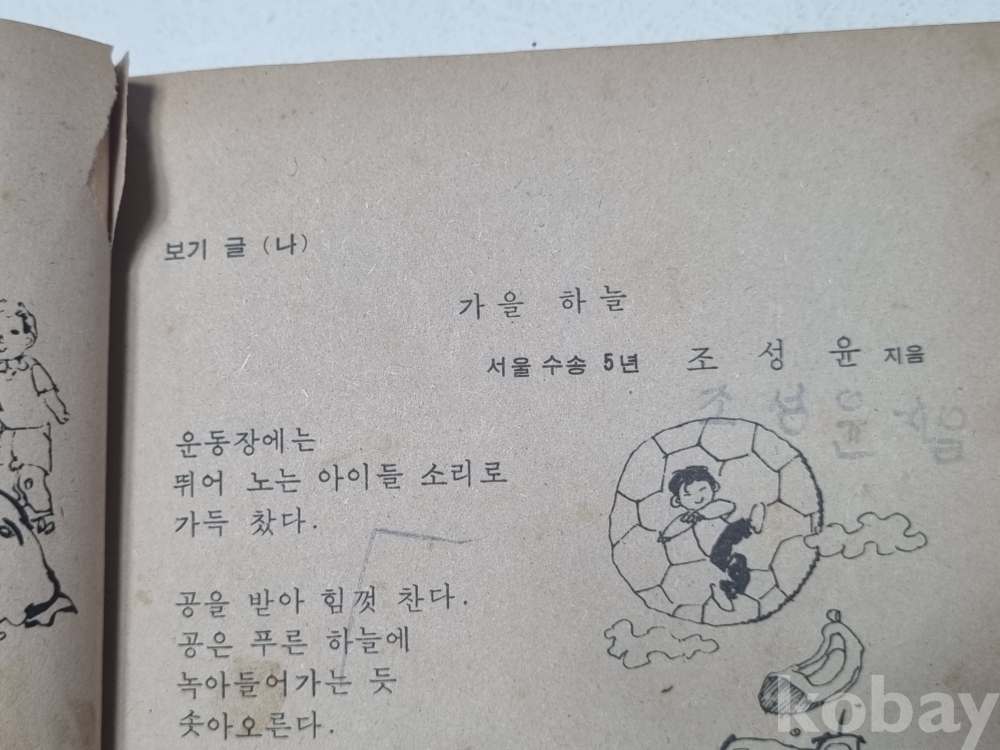 보기 글 (나)
가을 하늘
서울 수송 5년 조성윤 지음
조성윤
운동장에는
뛰어 노는 아이들 소리로
가득 찼다.
공을 받아 힘껏 찬다.
공은 푸른 하늘에
녹아들어가는 듯
솟아오른다.
kobay